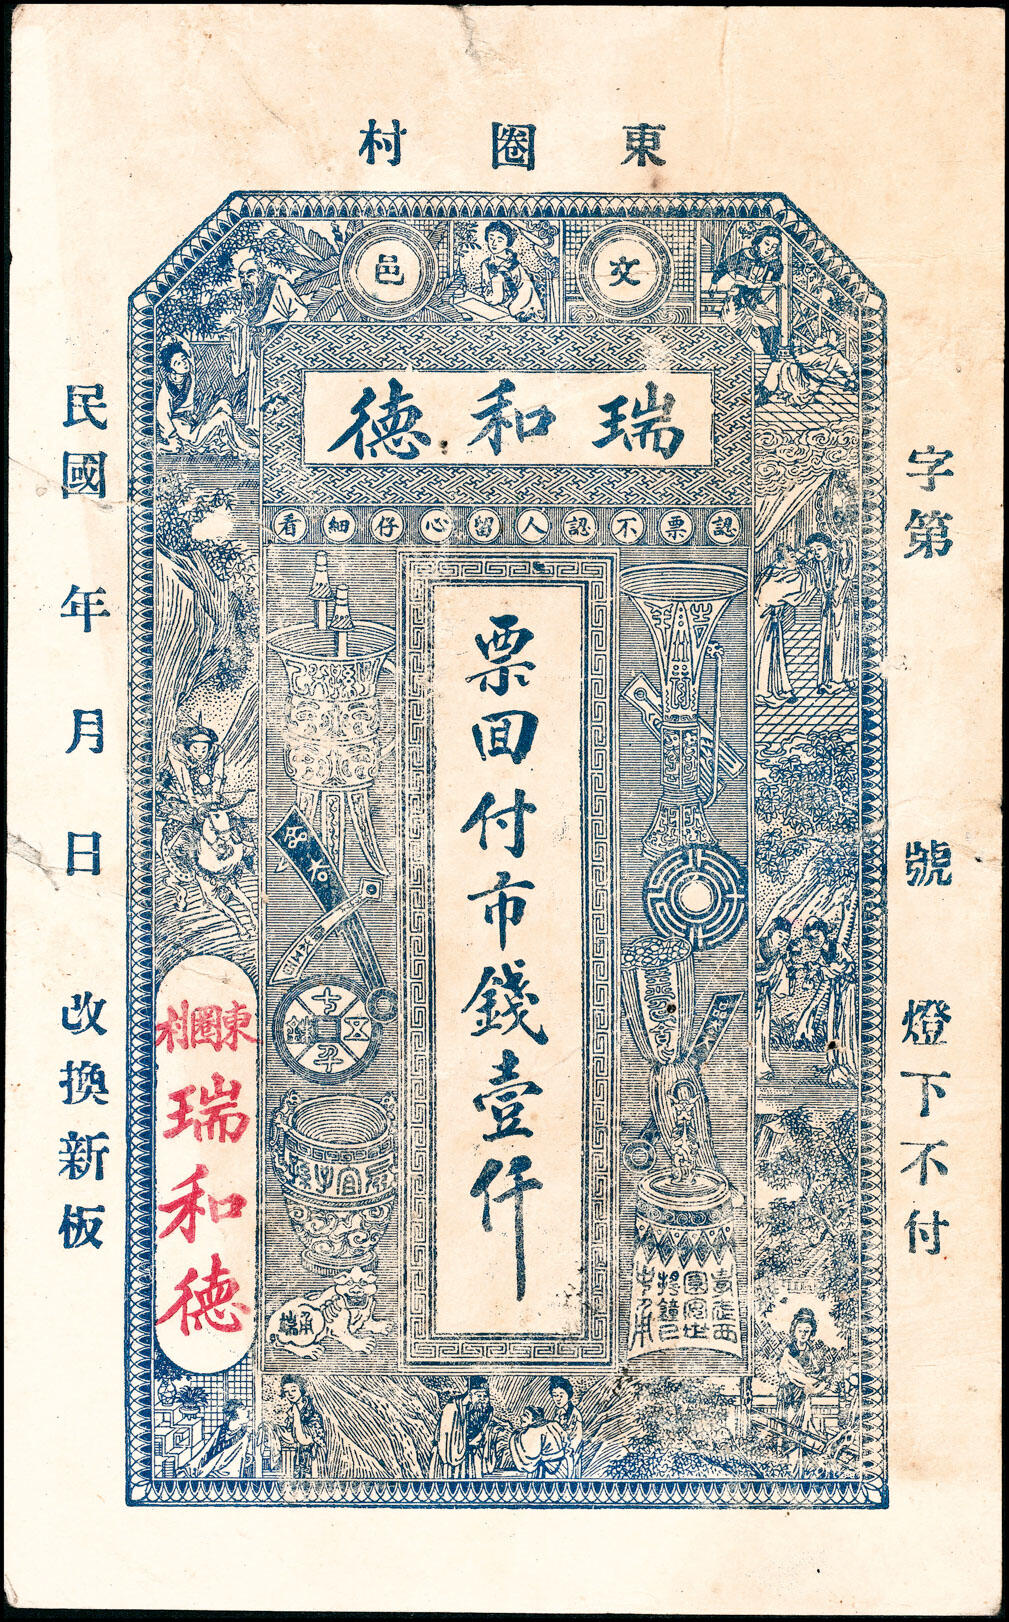 東圈村
文邑
瑞和德
認票不認人留心仔細看
票回付市錢壹仟
字第 號 燈下不付
民國 年 月 日 改換新板
東圈村
瑞和德